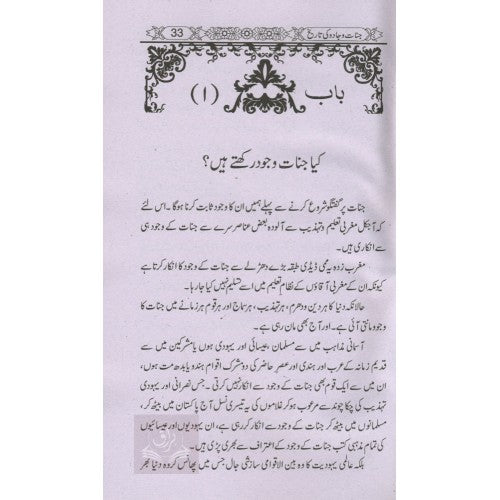 جنات و جادو کی تاریخ 33
باب (۱)
کیا جنات وجود رکھتے ہیں؟
جنات پر گفتگو شروع کرنے سے پہلے ہمیں ان کا وجود ثابت کرنا ہوگا۔ اس لئے
کہ آجکل مغربی تعلیم و تہذیب سے آلودہ بعض عناصر سرے سے جنات کے وجود ہی
سے انکاری ہیں۔
مغرب زدہ یہ ممی ڈیڈی طبقہ بڑے دھڑلے سے جنات کے وجود کا انکار کرتا ہے
کیونکہ ان کے مغربی آقاؤں کے نظام تعلیم میں اسے تسلیم نہیں کیا جا رہا۔
حالانکہ دنیا کا ہر دین و دھرم، ہر تہذیب، ہر سماج اور ہر قوم ہر زمانے میں جنات کا
وجود مانتی آئی ہے۔ اور آج بھی مان رہی ہے۔
آسمانی مذاہب میں سے مسلمان، عیسائی اور یہودی ہوں یا مشرکین میں سے
قدیم زمانہ کے عرب اور ہندی اور عصر حاضر کی دو مشرک اقوام ہندو یا بدھ مت ہوں،
ان میں سے ایک قوم بھی جنات کے وجود سے انکار نہیں کرتی۔ جس نصرانی اور یہودی
تہذیب کی چکا چوند سے مرعوب ہو کر غلاموں کی یہ تیسری نسل آج پاکستان میں بیٹھ کر،
مسلمانوں میں بیٹھ کر جنات کے وجود سے انکار کر رہی ہے، ان یہودیوں اور عیسائیوں
کی تمام مذہبی کتب جنات کے وجود کے اعتراف سے بھری پڑی ہیں۔
بلکہ عالمی یہودیت کا وہ بین الاقوامی سازشی جال جس میں پھانس کر وہ دنیا بھر